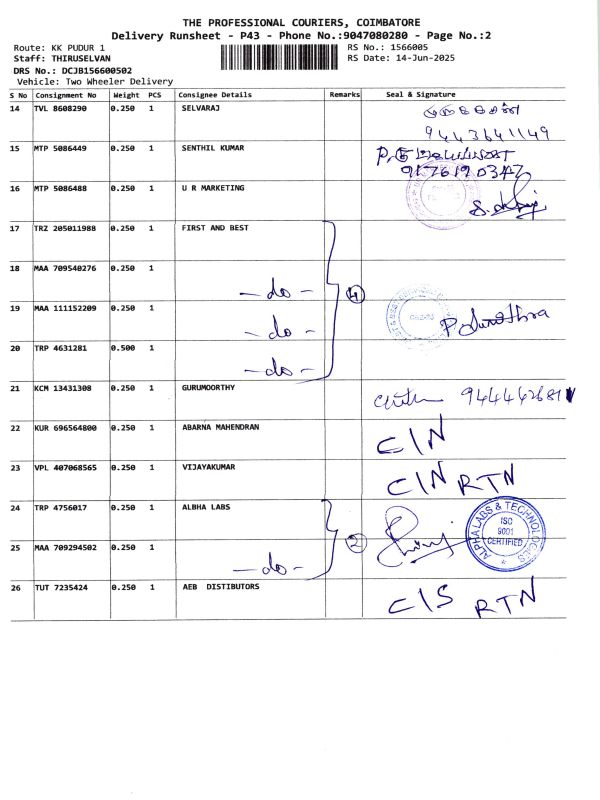 THE PROFESSIONAL COURIERS, COIMBATORE
Delivery Runsheet - P43 - Phone No.:9047080280 - Page No.:2
Route: KK PUDUR 1 RS No.: 1566005
Staff: THIRUSELVAN RS Date: 14-Jun-2025
DRS No.: DCJB156600502
Vehicle: Two Wheeler Delivery
S No Consignment No Weight PCS Consignee Details Remarks Seal & Signature
14 TVL 8608290 0.250 1 SELVARAJ
9443641149
15 MTP 5086449 0.250 1 SENTHIL KUMAR
9176190347
16 MTP 5086488 0.250 1 U R MARKETING
17 TRZ 205011988 0.250 1 FIRST AND BEST
18 MAA 709540276 0.250 1 -do- 4
19 MAA 111152209 0.250 1 -do-
20 TRP 4631281 0.500 1 -do-
21 KCM 13431308 0.250 1 GURUMOORTHY
22 KUR 696564800 0.250 1 ABARNA MAHENDRAN C/N
23 VPL 407068565 0.250 1 VIJAYAKUMAR C/N RTN
24 TRP 4756017 0.250 1 ALBHA LABS 2
ALPHA LABS & TECHNOLOGIES
ISO
9001
CERTIFIED
25 MAA 709294502 0.250 1 -do-
26 TUT 7235424 0.250 1 AEB DISTIBUTORS C/S RTN